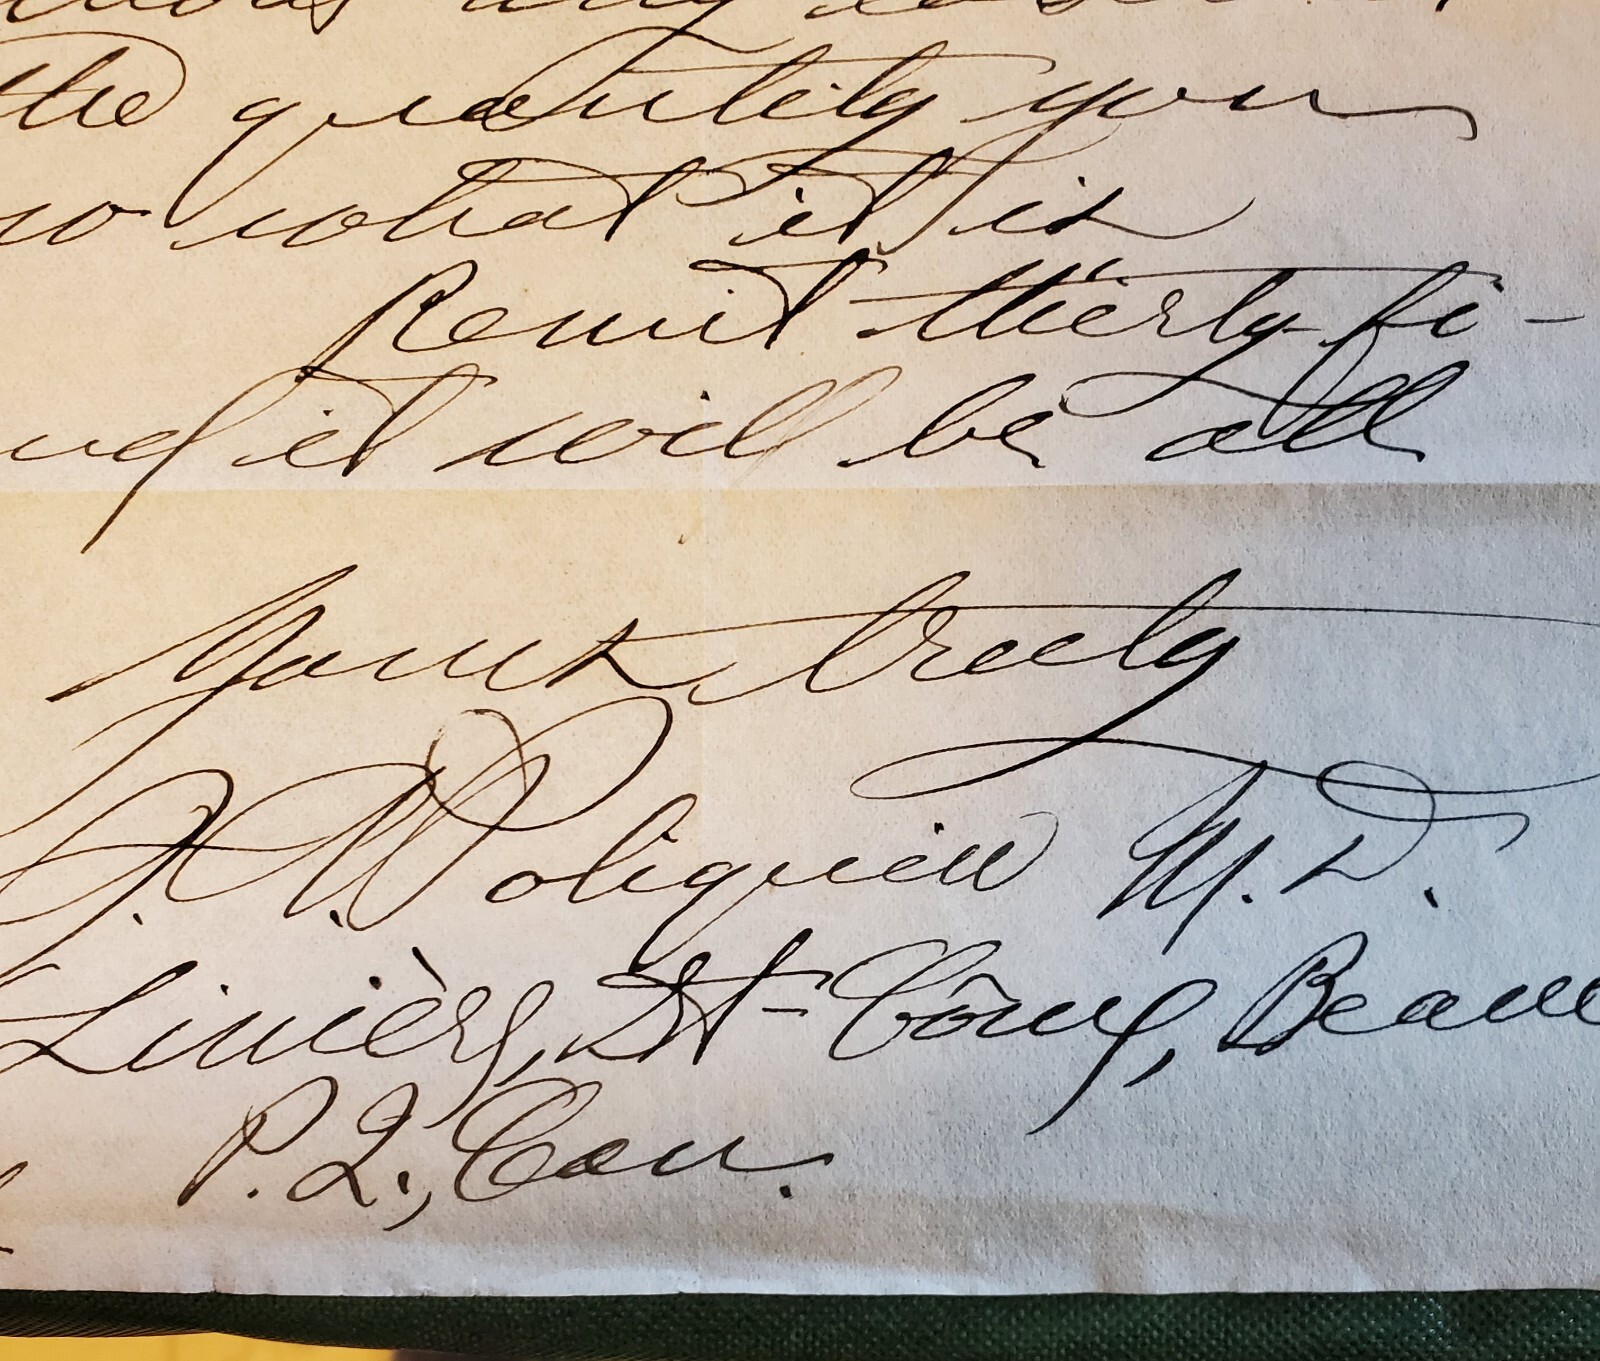 the quantity you
so what it is
Remit thierty-fi-
and it will be all
Yours truly
Poliquin M.D.
Linière, St-Côme, Beauce
P.Q., Can.